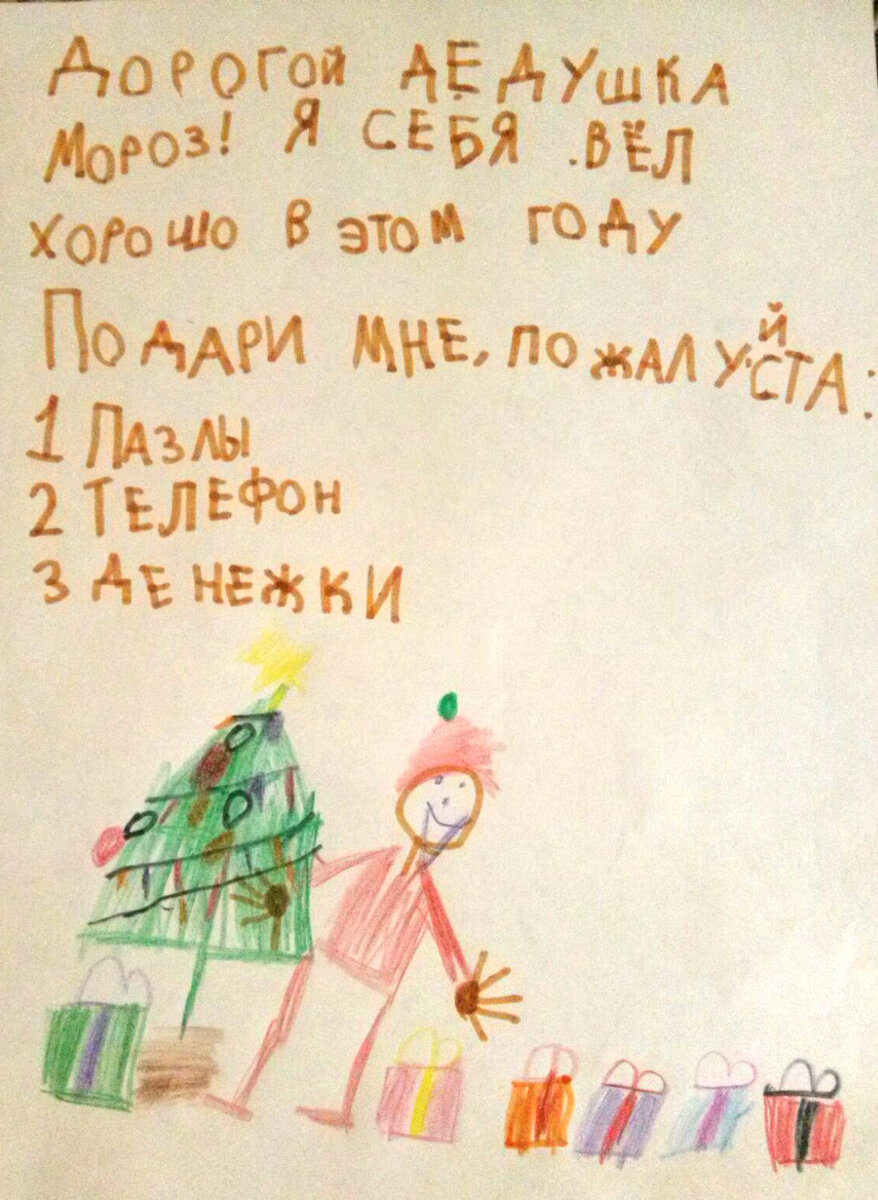 ДОРОГОЙ ДЕДУШКА
МОРОЗ! Я СЕБЯ ВЁЛ
ХОРОШО В ЭТОМ ГОДУ
ПОДАРИ МНЕ, ПОЖАЛУЙСТА:
1 ПАЗЛЫ
2 ТЕЛЕФОН
3 ДЕНЕЖКИ